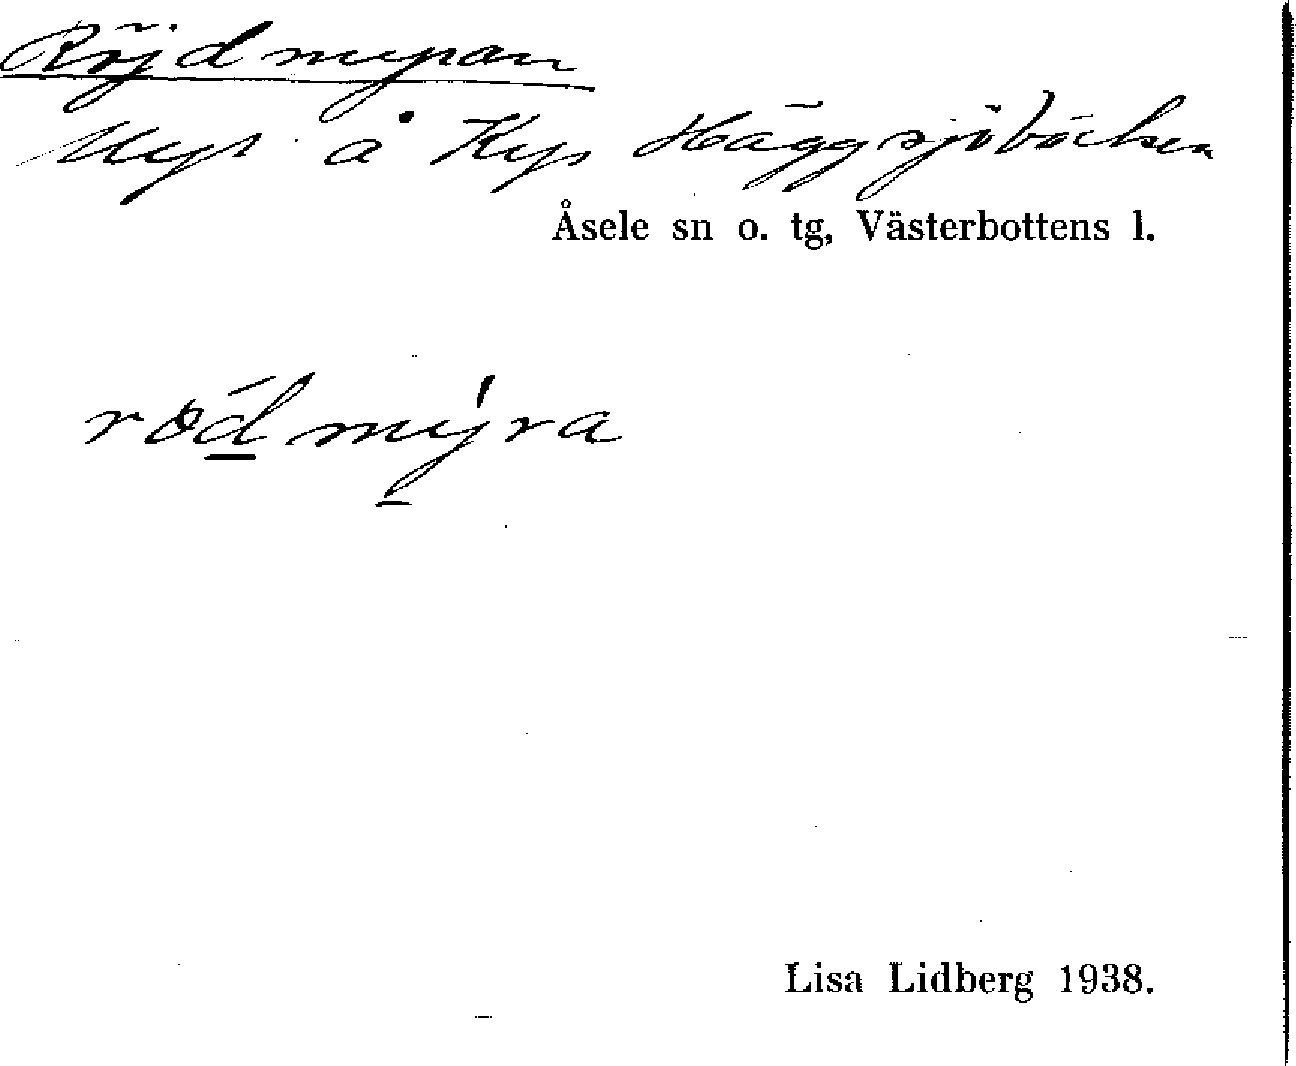 Röjdmyran
Myr å Kyrk Häggsjöbäcken
Åsele sn o. tg, Västerbottens l.
rödmýra
Lisa Lidberg 1938.